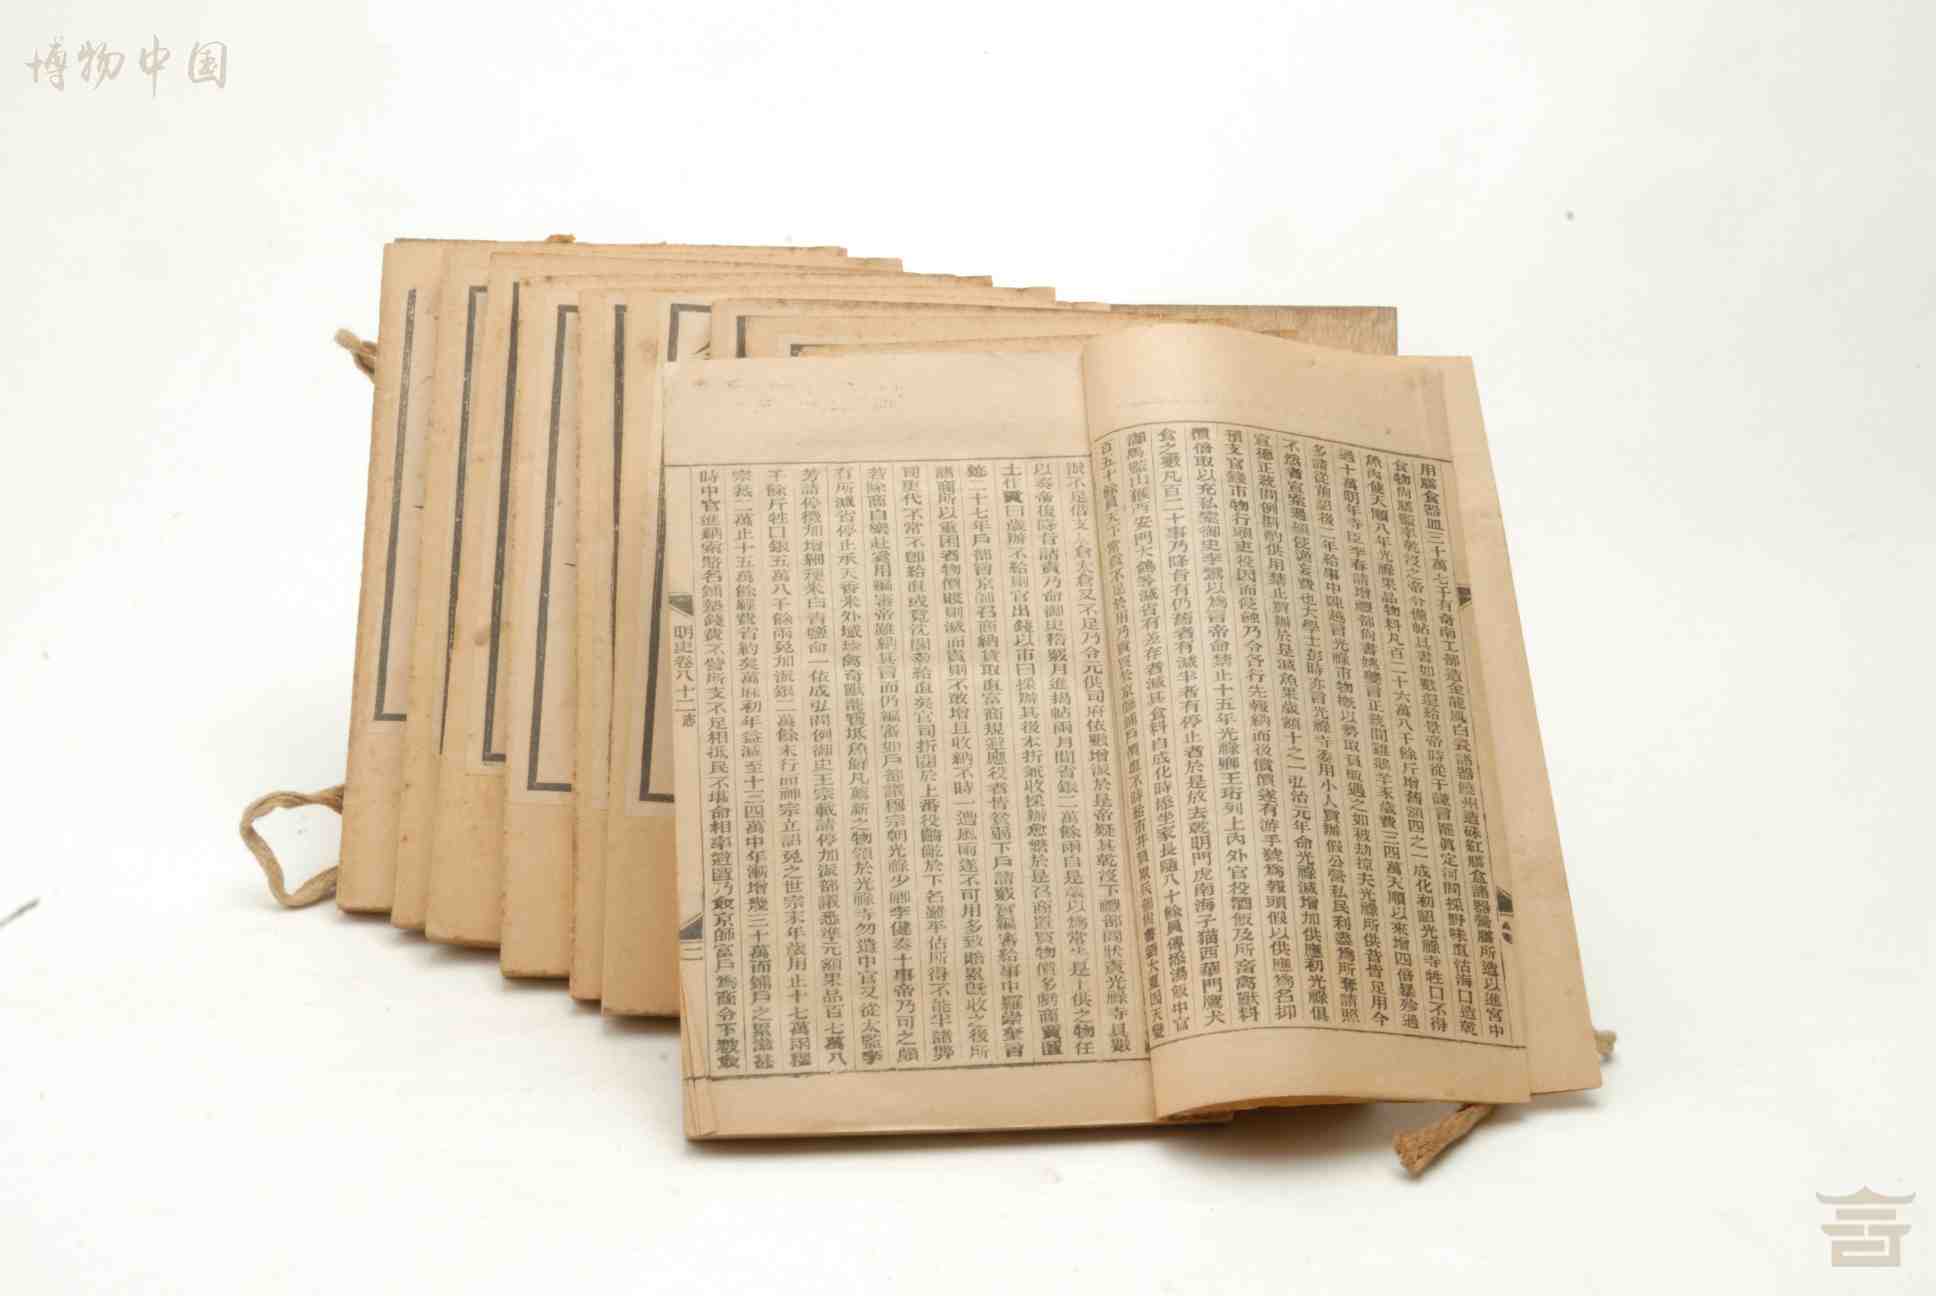 博物中国
用膳食器皿三十萬七千有奇南工部造金龍鳳白瓷諸器饒州造硃紅膳盒諸器營膳所造以進宮中
食物尚膳監率乾沒之帝令備帖具書如數還給景帝時從于謙言罷眞定河間採野味直沽海口造乾
魚內使天順八年光祿果品物料凡百二十六萬八千餘斤增舊額四之一成化初詔光祿寺牲口不得
過十萬明年寺臣李春請增禮部尚書姚夔言正統間雞鵝羊豕歲費三四萬天順以來增四倍暴殄過
多請從前詔後二年給事中陳鉞言光祿市物概以勢取負販遇之如被劫掠夫光祿所供昔皆足用今
不然者宣索過額侵漁妄費也大學士彭時亦言光祿寺委用小人買辦假公營私民利盡爲所奪請照
宣德正統間例斟酌供用禁止買辦於是減魚果歲額十之一弘治元年命光祿減增加供應初光祿俱
預支官錢市物行頭吏役因而侵蝕乃令各行先報納而後償價遂有游手號爲報頭假以供應爲名抑
價倍取以充私橐御史李鸞以爲言帝命禁止十五年光祿卿王珩列上內外官役酒飯及所畜禽獸料
食之數凡百二十事乃降旨有仍舊者有減半者有停止者於是放去乾明門虎南海子貓西華門鷹犬
御馬監山猴西安門大鴿等減省有差存者減其食料自成化時添坐家長隨八十餘員傳添湯飯中官
百五十餘員天下常貢不足於用乃責買於京師鋪戶價直不時給市井負累兵部尚書劉大夏因天變
不足借支太倉太倉又不足乃令元供司府依數增派於是帝疑其乾沒下禮部問狀責光祿寺具數
以奏帝復降旨詰責乃命御史稽覈月進揭帖兩月間省銀二萬餘兩自是歲以爲常先是上供之物任
土作貢曰歲辦不給則官出錢以市曰採辦其後本折兼收採辦愈繁於是召商置買物價多虧商賈匿
跡二十七年戶部言京師召商納貨取直富商規避應役者皆貧弱下戶請覈實編審給事中羅崇奎言
諸商所以重困者物價賤則減而貴則不敢增且收納不時一遭風雨遂不可用多致賠累既收之後所
司更代不常不卽給直或竟沈閣幸給直矣官司折閱於上番役齮齕於下名雖平估所得不能半諸弊
若除商自樂赴奚用編審帝雖納其言而仍編審如戶部議穆宗朝光祿少卿李健奏十事帝乃可之頗
有所減省停止承天香米外域珍禽奇獸罷寶坻魚鮮凡薦新之物領於光祿寺勿遣中官又從太監李
芳請停徵加增細稉米白青鹽命一依成弘間例御史王宗載請停加派部議悉準元額果品百七萬八
千餘斤牲口銀五萬八千餘兩免加派銀二萬餘未行而神宗立詔免之世宗末年歲用止十七萬兩穆
宗裁二萬止十五萬餘經費省約矣萬曆初年益減至十三四萬中年漸增幾三十萬而鋪戶之累滋甚
時中官進納索賂名鋪墊錢費不訾所支不足相抵民不堪命相率避匿乃僉京師富戶爲商令下被僉
明史卷八十二志
二